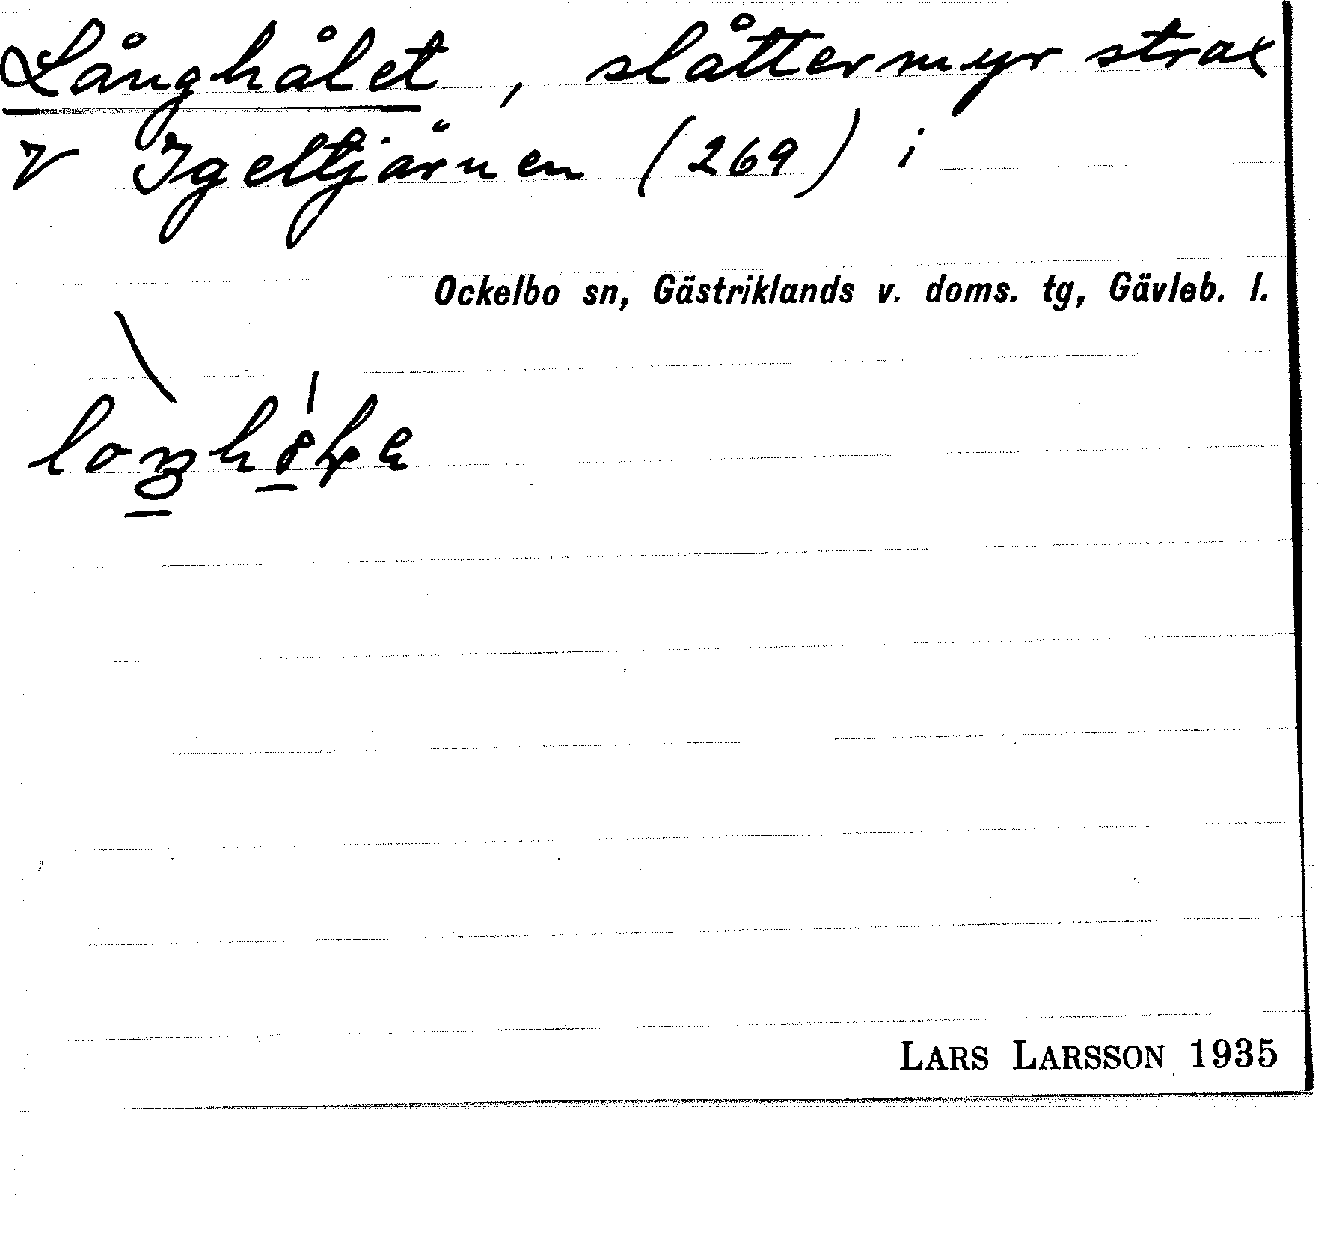 Långhålet, slåttermyr strax
V Igeltjärnen (269) i
Ockelbo sn, Gästriklands v. doms. tg, Gävleb. l.
LARS LARSSON 1935